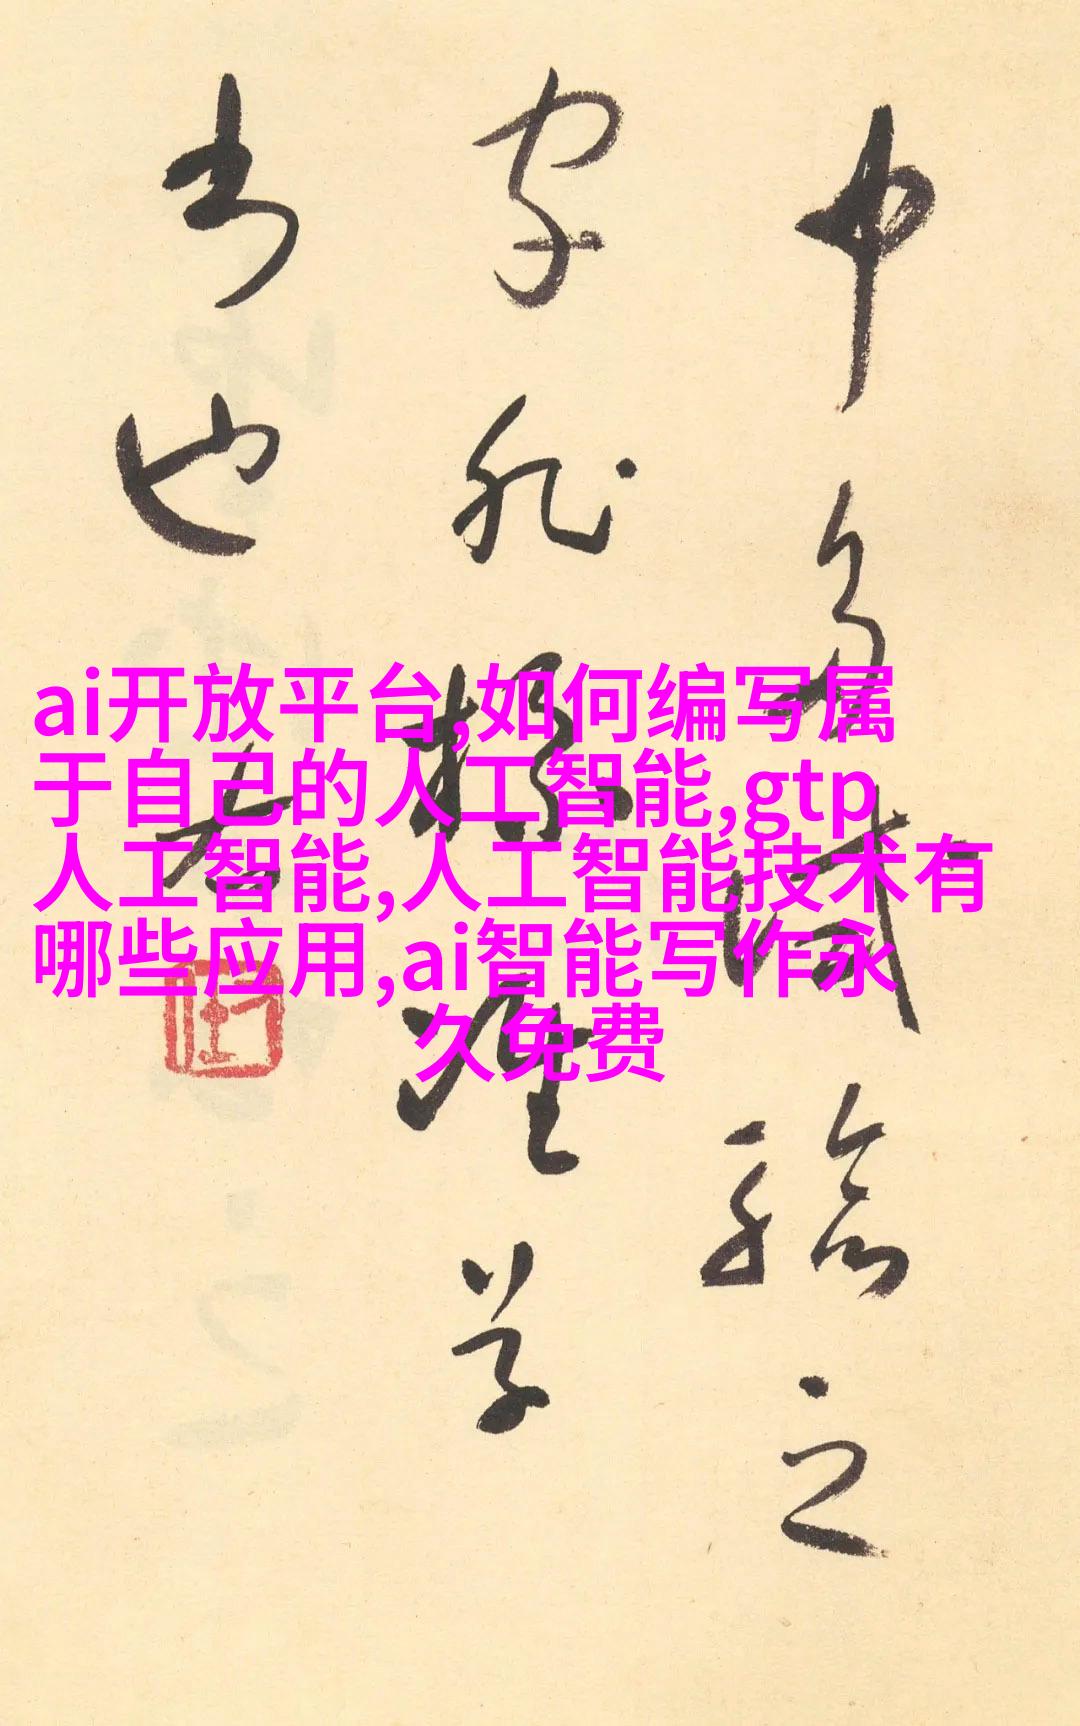 ai开放平台,如何编写属
于自己的人工智能,gtp
人工智能,人工智能技术有
哪些应用,ai智能写作永
久免费
中多之
字非極難学
也